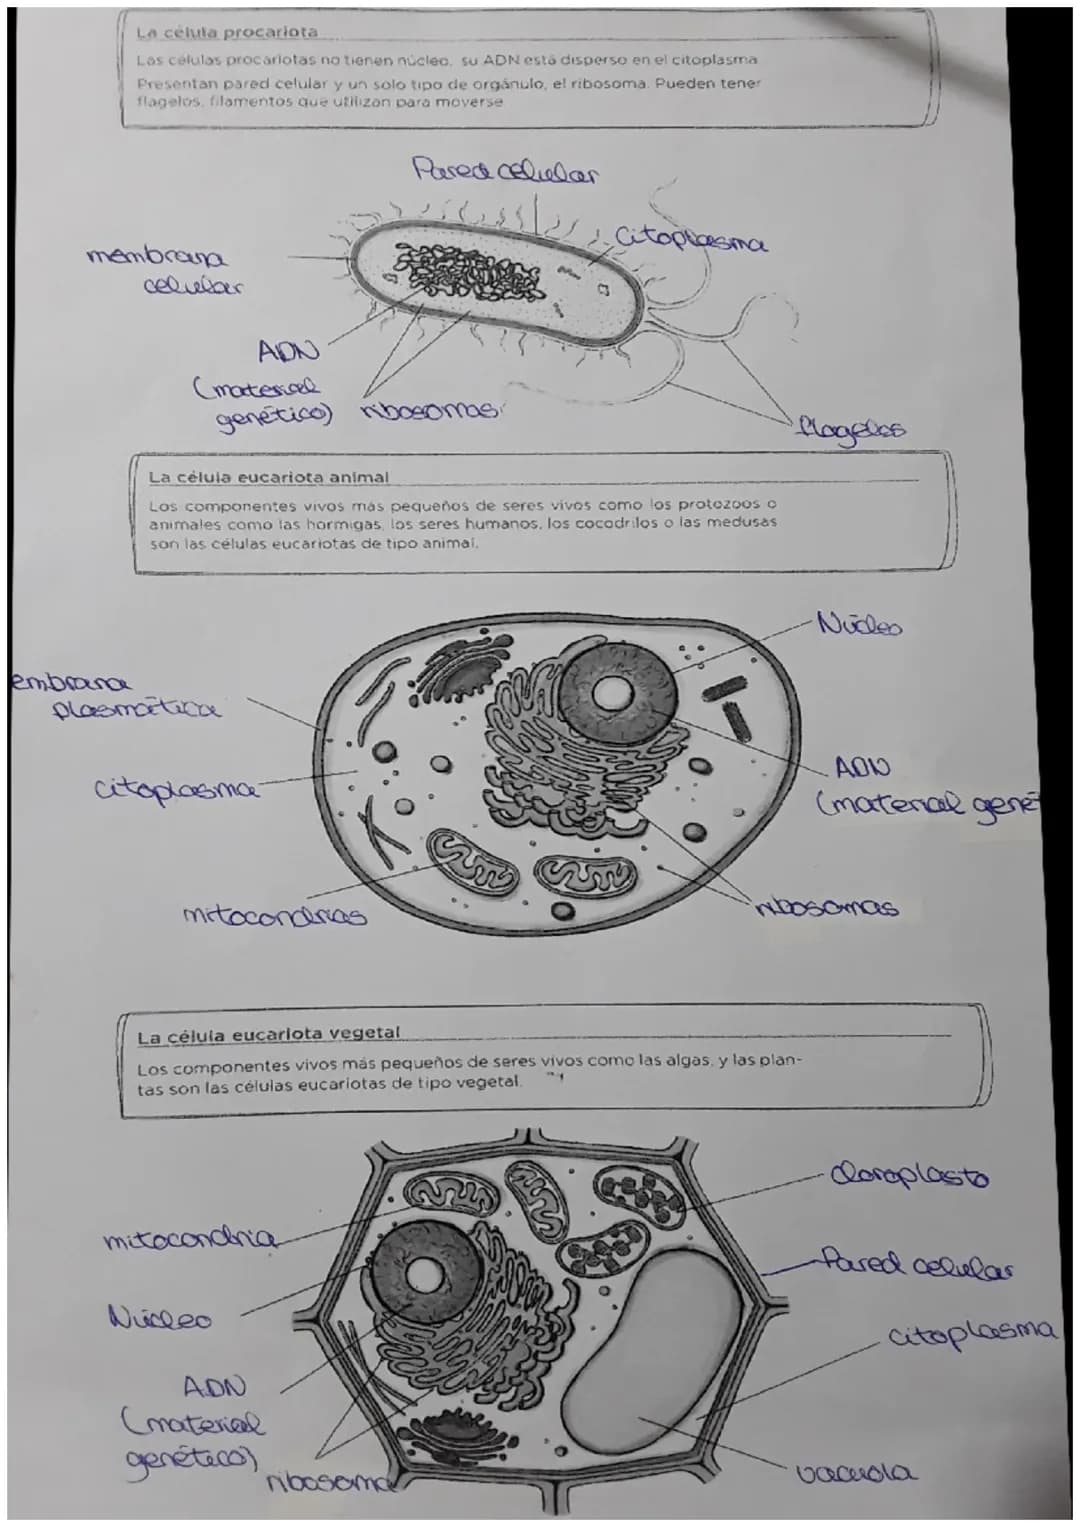 La célula procariota
Las células procariotas no tienen núcleo, su ADN está disperso en el citoplasma
Presentan pared celular y un solo tipo de orgánulo, el ribosoma. Pueden tener
flagelos, filamentos que utilizan para moverse
Pared celular
citoplasma
membrana
celular
ADN
(material
genético)
ribosomas
flagelos
La célula eucariota animal
Los componentes vivos más pequeños de seres vivos como los protozoos o
animales como las hormigas, los seres humanos, los cocodrilos o las medusas
son las células eucariotas de tipo animal.
Núcleo
embrana
plasmática
citoplasma
ADN
(material gené
mitocondrias
ribosomas
La célula eucariota vegetal
Los componentes vivos más pequeños de seres vivos como las algas, y las plan-
tas son las células eucariotas de tipo vegetal.
cloroplasto
mitocondria
Pared celular
Núcleo
citoplasma
ADN
(material
genético)
ribosoma
vacuola